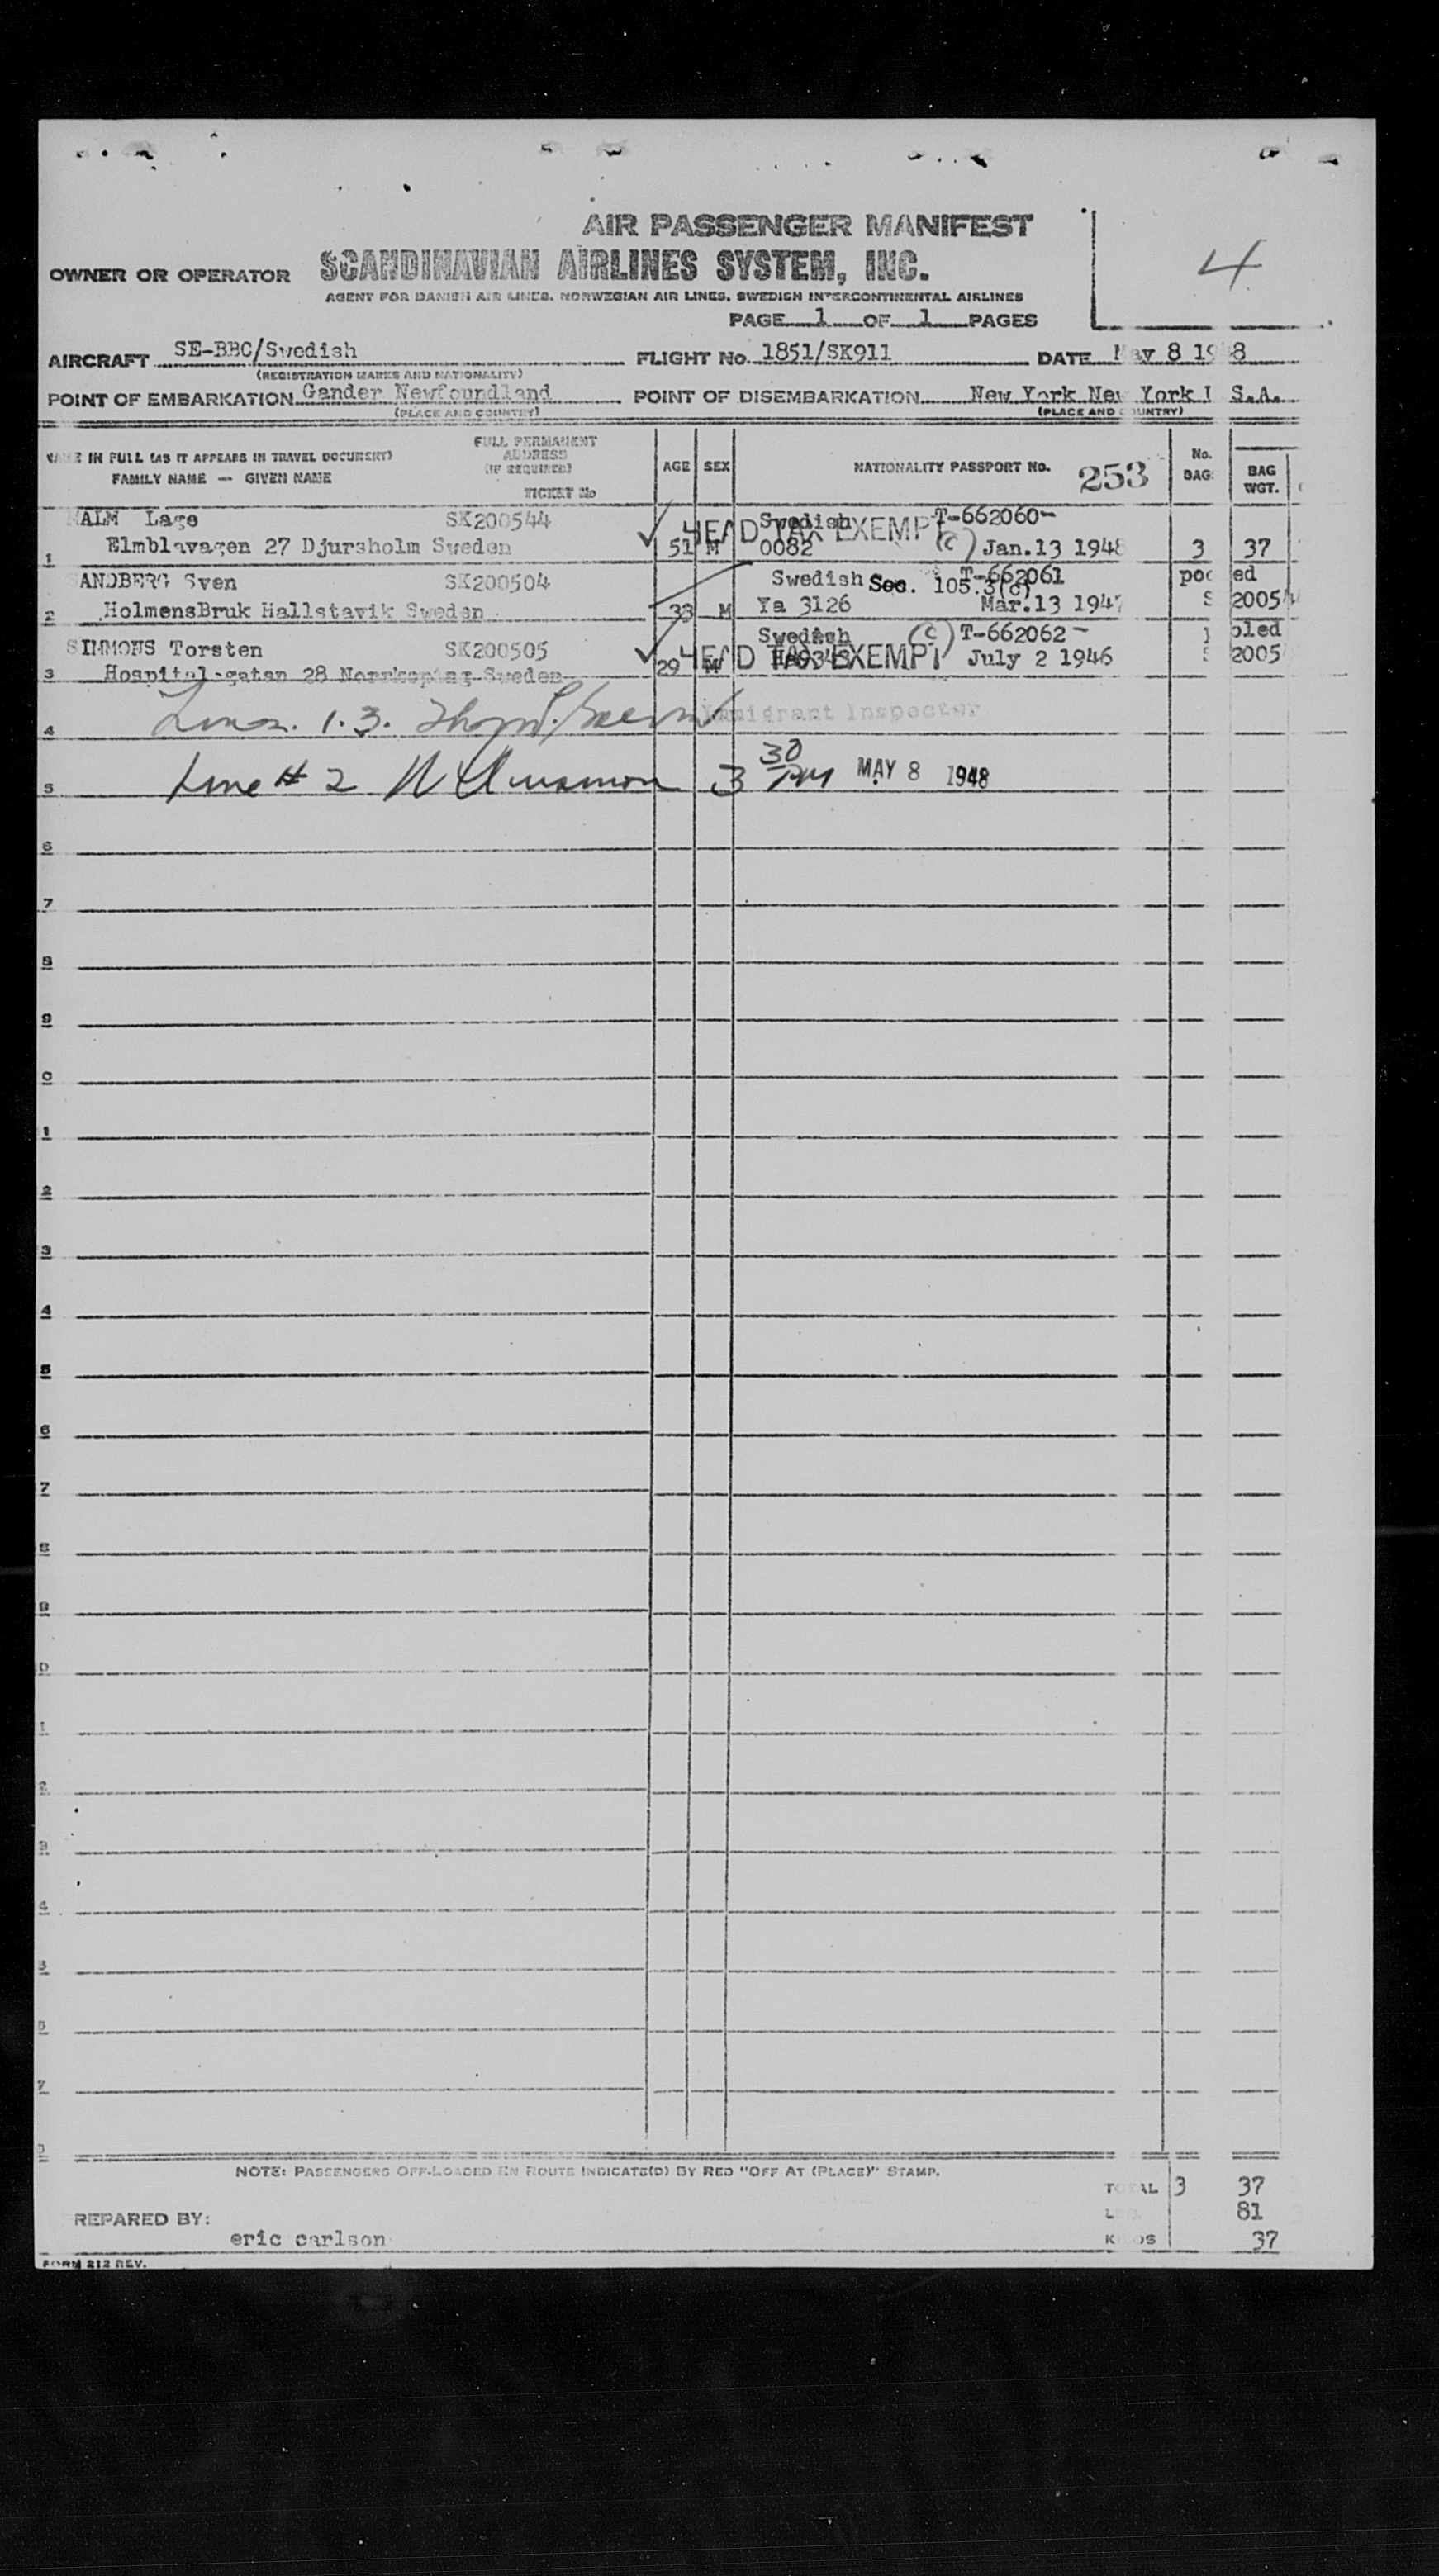 AIR PASSENGER MANIFEST
4
OWNER OR OPERATOR SCANDINAVIAN AIRLINES SYSTEM, INC.
AGENT FOR DANISH AIR LINES, NORWEGIAN AIR LINES, SWEDISH INTERCONTINENTAL AIRLINES
PAGE 1 OF 1 PAGES
AIRCRAFT SE-BBC/Swedish FLIGHT No. 1851/SK911 DATE May 8 19 8
(REGISTRATION MARKS AND NATIONALITY)
POINT OF EMBARKATION Gander Newfoundland POINT OF DISEMBARKATION New York New York S.A.
(PLACE AND COUNTRY) (PLACE AND C UNTRY)
IN FULL (AS IT APPEARS IN TRAVEL DOCUMENT)
FAMILY NAME — GIVEN NAME
FULL PERMANENT
ADDRESS
(IF REQUIRED)
TICKET No
AGE SEX NATIONALITY PASSPORT No. 253
No.
BAG
BAG
WGT.
ALM Lage SK200544 Swedish T-662060-
HEAD TAX EXEMPT
1 Elmblavagen 27 Djursholm Sweden 51 M 0082 (c) Jan.13 1948 3 37
ANDBERG Sven SK200504 Swedish Sec. 105.3(c) T-662061 poo ed
2 HolmensBruk Hallstavik Sweden 33 M Ya 3126 Mar.13 1947 S 2005
SIMMONS Torsten SK200505 Swedish (c) T-662062- oled
HEAD TAX EXEMPT
3 Hospital-gatan 28 Norrkoping Sweden 29 M July 2 1946 2005
Immigrant Inspector
4 Lines. 1.3.
5 Line # 2 3 30 PM MAY 8 1948
6
7
8
9
0
1
2
3
4
5
6
7
8
9
0
1
2
3
4
5
6
7
NOTE: PASSENGERS OFF-LOADED EN ROUTE INDICATE(D) BY RED "OFF AT (PLACE)" STAMP.
T AL 3 37
L 81
REPARED BY:
eric carlson K OS 37
FORM 212 REV.